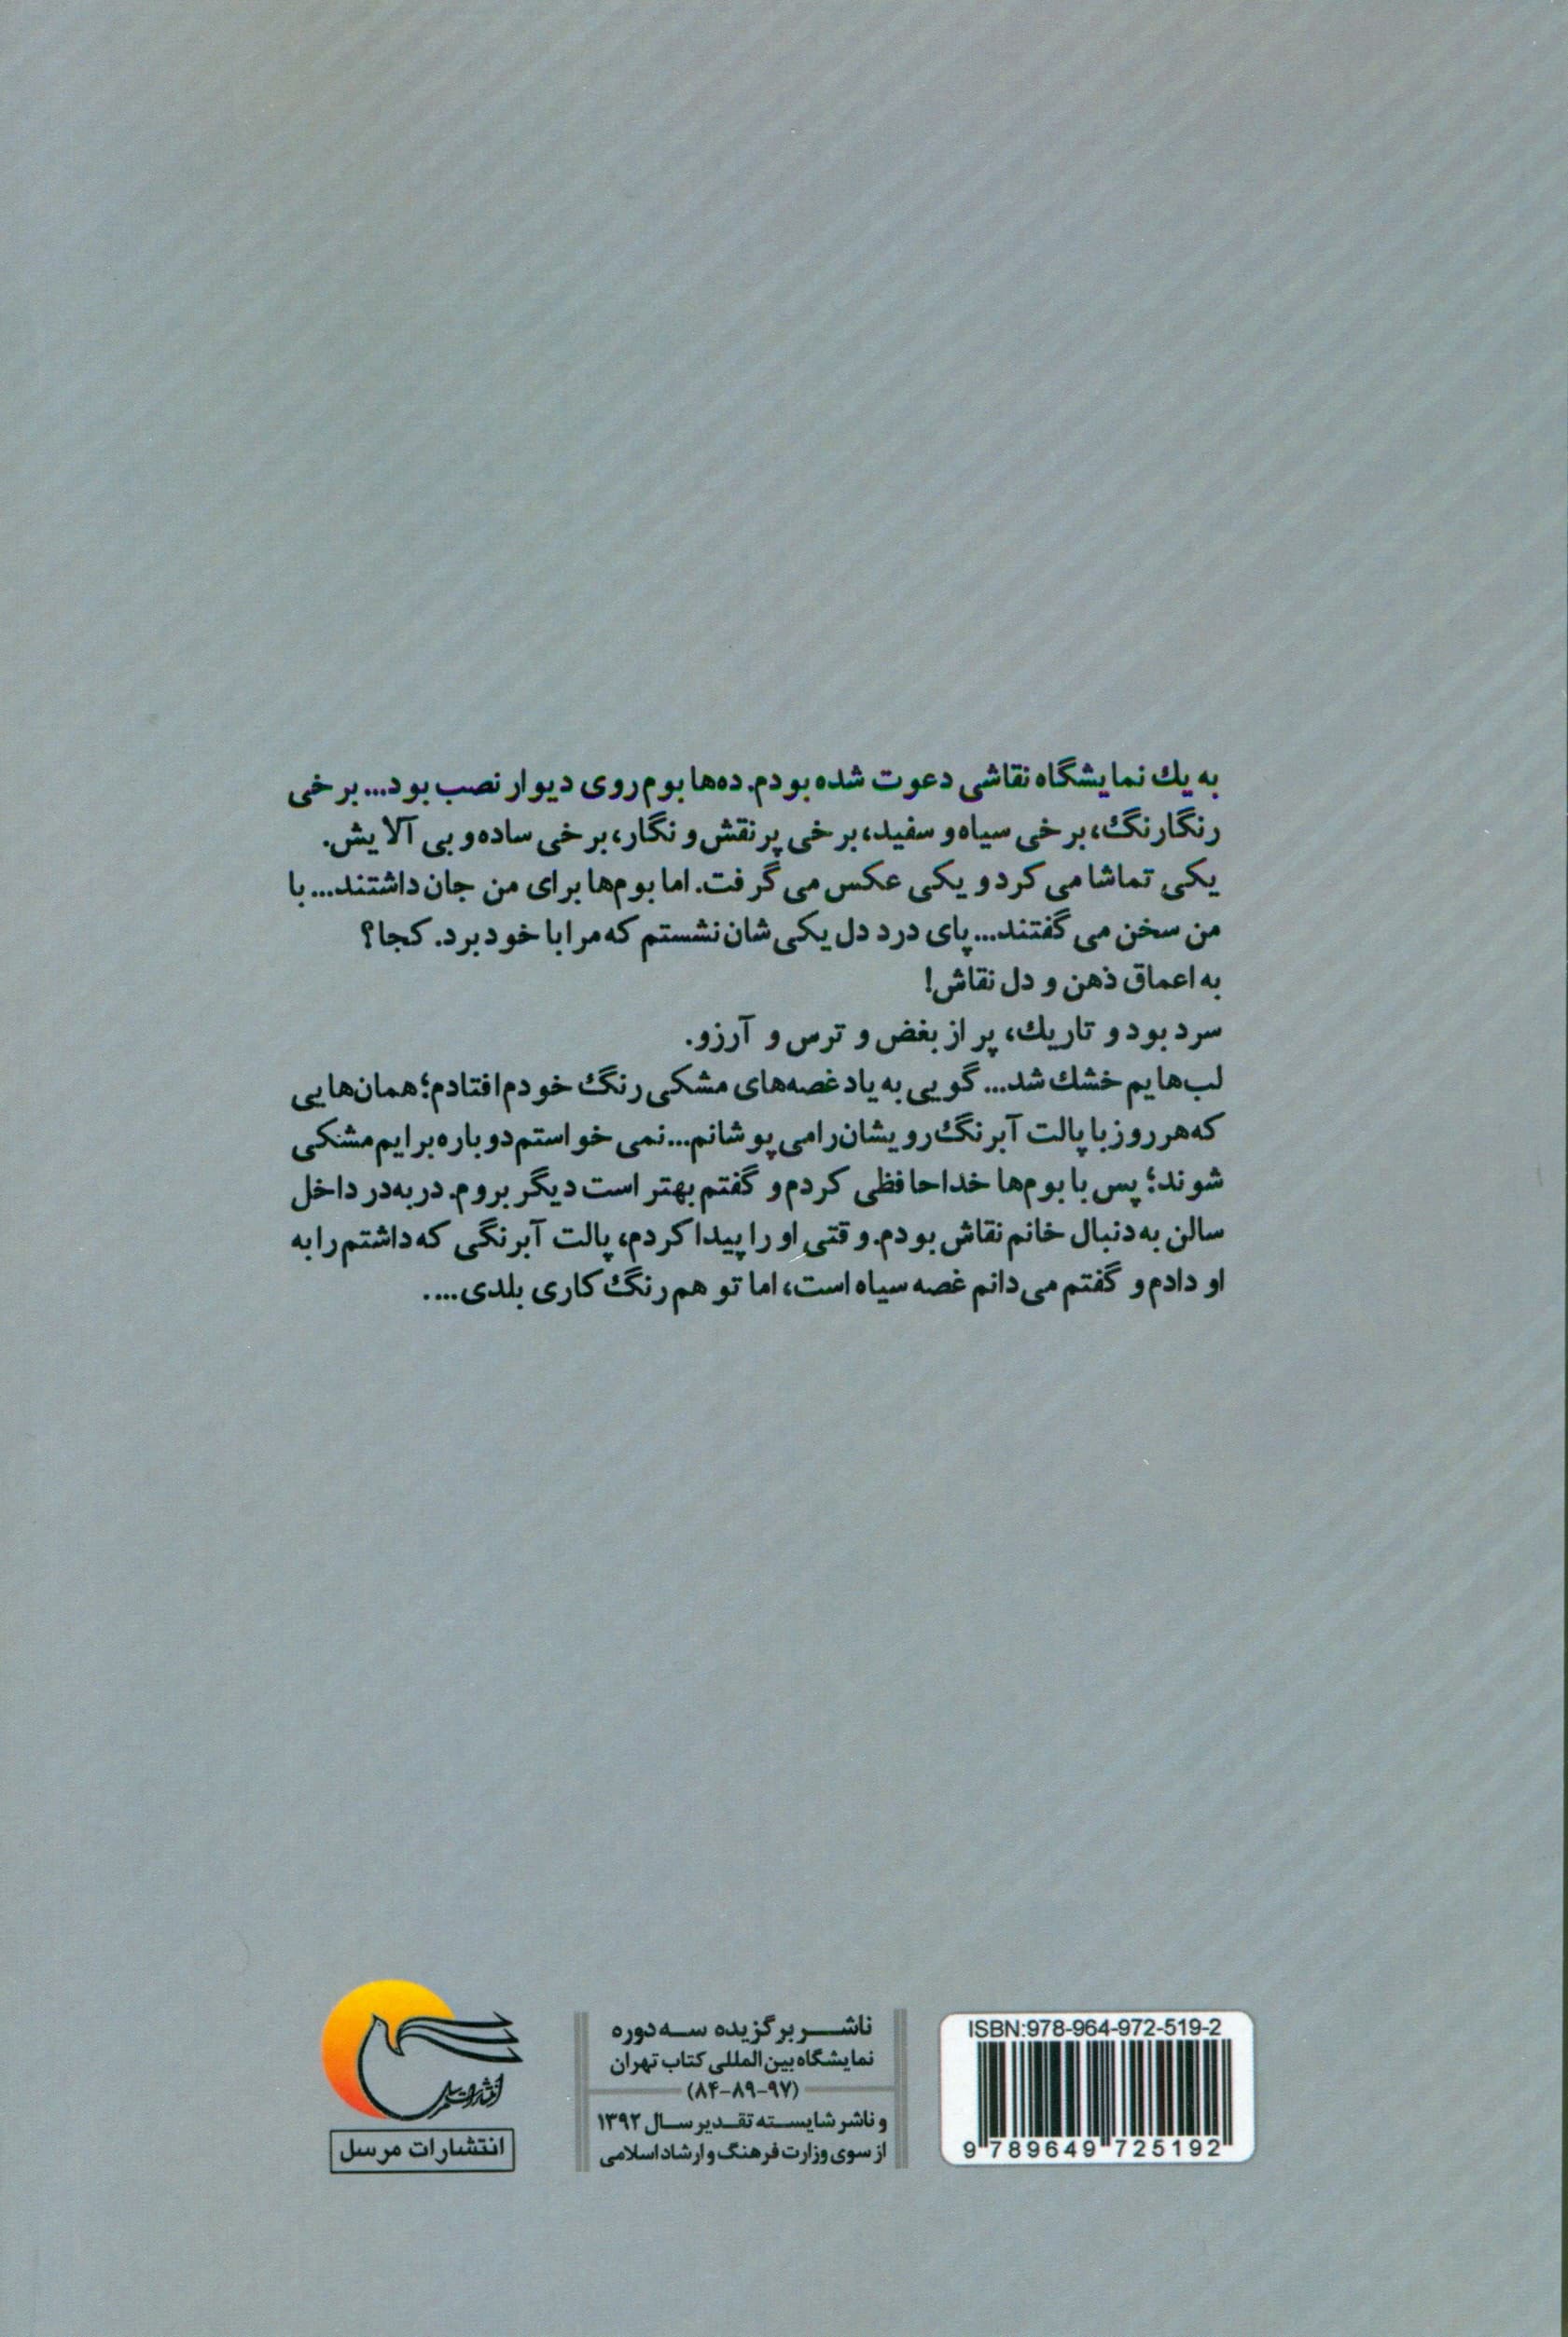 به یک نمایشگاه نقاشی دعوت شده بودم. ده‌ها بوم روی دیوار نصب بود... برخی
رنگارنگ، برخی سیاه و سفید، برخی پر نقش و نگار، برخی ساده و بی آلایش.
یکی تماشا می کرد و یکی عکس می گرفت. اما بوم‌ها برای من جان داشتند... با
من سخن می گفتند... پای درد دل یکی شان نشستم که مرا با خود برد. کجا؟
به اعماق ذهن و دل نقاش!
سرد بود و تاریک، پر از بغض و ترس و آرزو.
لب‌هایم خشک شد... گویی به یاد غصه‌های مشکی رنگ خودم افتادم؛ همان‌هایی
که هر روز با پالت آبرنگ رویشان را می پوشانم... نمی خواستم دوباره برایم مشکی
شوند؛ پس با بوم‌ها خداحافظی کردم و گفتم بهتر است دیگر بروم. دربه‌در داخل
سالن به دنبال خانم نقاش بودم. وقتی او را پیدا کردم، پالت آبرنگی که داشتم را به
او دادم و گفتم می‌دانم غصه سیاه است، اما تو هم رنگ کاری بلدی....
ISBN:978-964-972-519-2
9 789649 725192
ناشر برگزیده سه دوره
نمایشگاه بین المللی کتاب تهران
(۸۴-۸۹-۹۷)
و ناشر شایسته تقدیر سال ۱۳۹۲
از سوی وزارت فرهنگ و ارشاد اسلامی
انتشارات مرسل
انتشارات مرسل